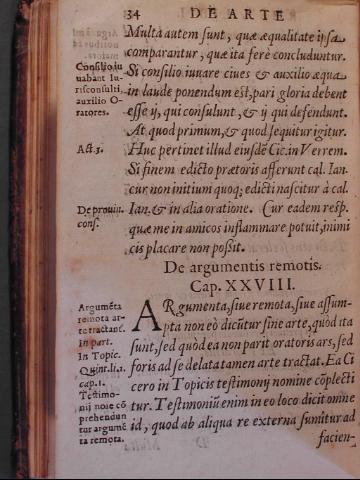 34 DE ARTE
Multa autem sunt, quæ æqualitate ipsa
comparantur, quæ ita ferè concluduntur.
Consilio iu
uabant Iu-
risconsulti,
auxilio O-
ratores.
Si consilio iuuare ciues & auxilio æqua
in laude ponendum est, pari gloria debent
esse ij, qui consulunt, & ij qui defendunt.
At quod primum, & quod sequitur igitur.
Act. 3.
Huc pertinet illud eiusdē Cic. in Verrem.
Si finem edicto prætoris afferunt cal. Ian.
cur non initium quoq; edicti nascitur à cal.
De prouin.
cons.
Ian. & in alia oratione. Cur eadem resp.
quæ me in amicos inflammare potuit, inimi
cis placare non poßit.
De argumentis remotis.
Cap. XXVIII.
Argumēta
remota ar-
te tractant.
In part.
In Topic.
Quint. li. 5.
cap. 1.
Testimo-
nij noīe cō
prehendun
tur argumē
ta remota.
ARgumenta, siue remota, siue assum-
pta non eò dicūtur sine arte, quòd ita
sunt, sed quòd ea non parit oratoris ars, sed
foris ad se delata tamen arte tractat. Ea Ci
cero in Topicis testimonij nomine cōplecti
tur. Testimoniū enim in eo loco dicit omne
id, quod ab aliqua re externa sumitur ad
facien-